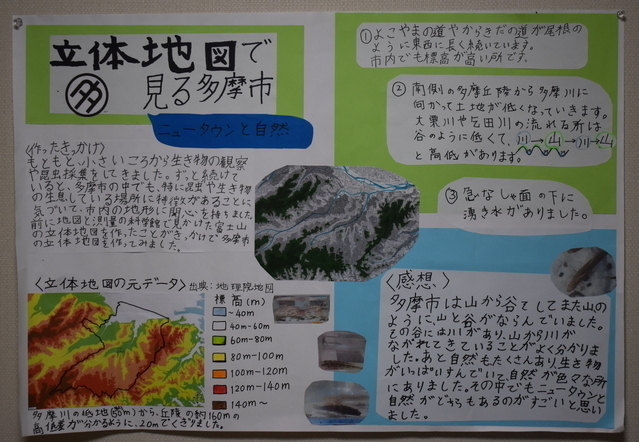 立体地図で
多 見る多摩市
ニュータウンと自然
〈作ったきっかけ〉
もともと、小さいころから生き物の観察
や昆虫採集をしてきました。ずっと続けて
いると、多摩市の中でも、特に昆虫や生き物
の生息している場所に特徴があることに
気づいて、市内の地形に関心を持ちました。
前に地図と測量の科学館で見かけた富士山
の立体地図を作ったことがきっかけで多摩市
の立体地図を作ってみました。
〈立体地図の元データ〉 出典:地理院地図
標高(m)
~40m
40m~60m
60m~80m
80m~100m
100m~120m
120m~140m
140m~
多摩川の低地(50m)から、丘陵の約160mの
高低差が分かるように、20mでくぎりました。
①よこやまの道やからきだの道が尾根の
ように東西に長く続いています。
市内でも標高が高い所です。
②南側の多摩丘陵から多摩川に
向かって土地が低くなっていきます。
大栗川や乞田川の流れる所は
谷のように低くて、川→山→川→山
と高低があります。
③急なしゃ面の下に
湧き水がありました。
〈感想〉
多摩市は山から谷そしてまた山の
ように、山と谷がならんでいました。
その谷には川があり、山から川が
ながれてきていることがよく分かりま
した。あと自然もたくさんあり、生き物
がいっぱいすんでいて、自然が色々な所
にありました。その中でもニュータウンと
自然がどちらもあるのがすごいと思い
ました。